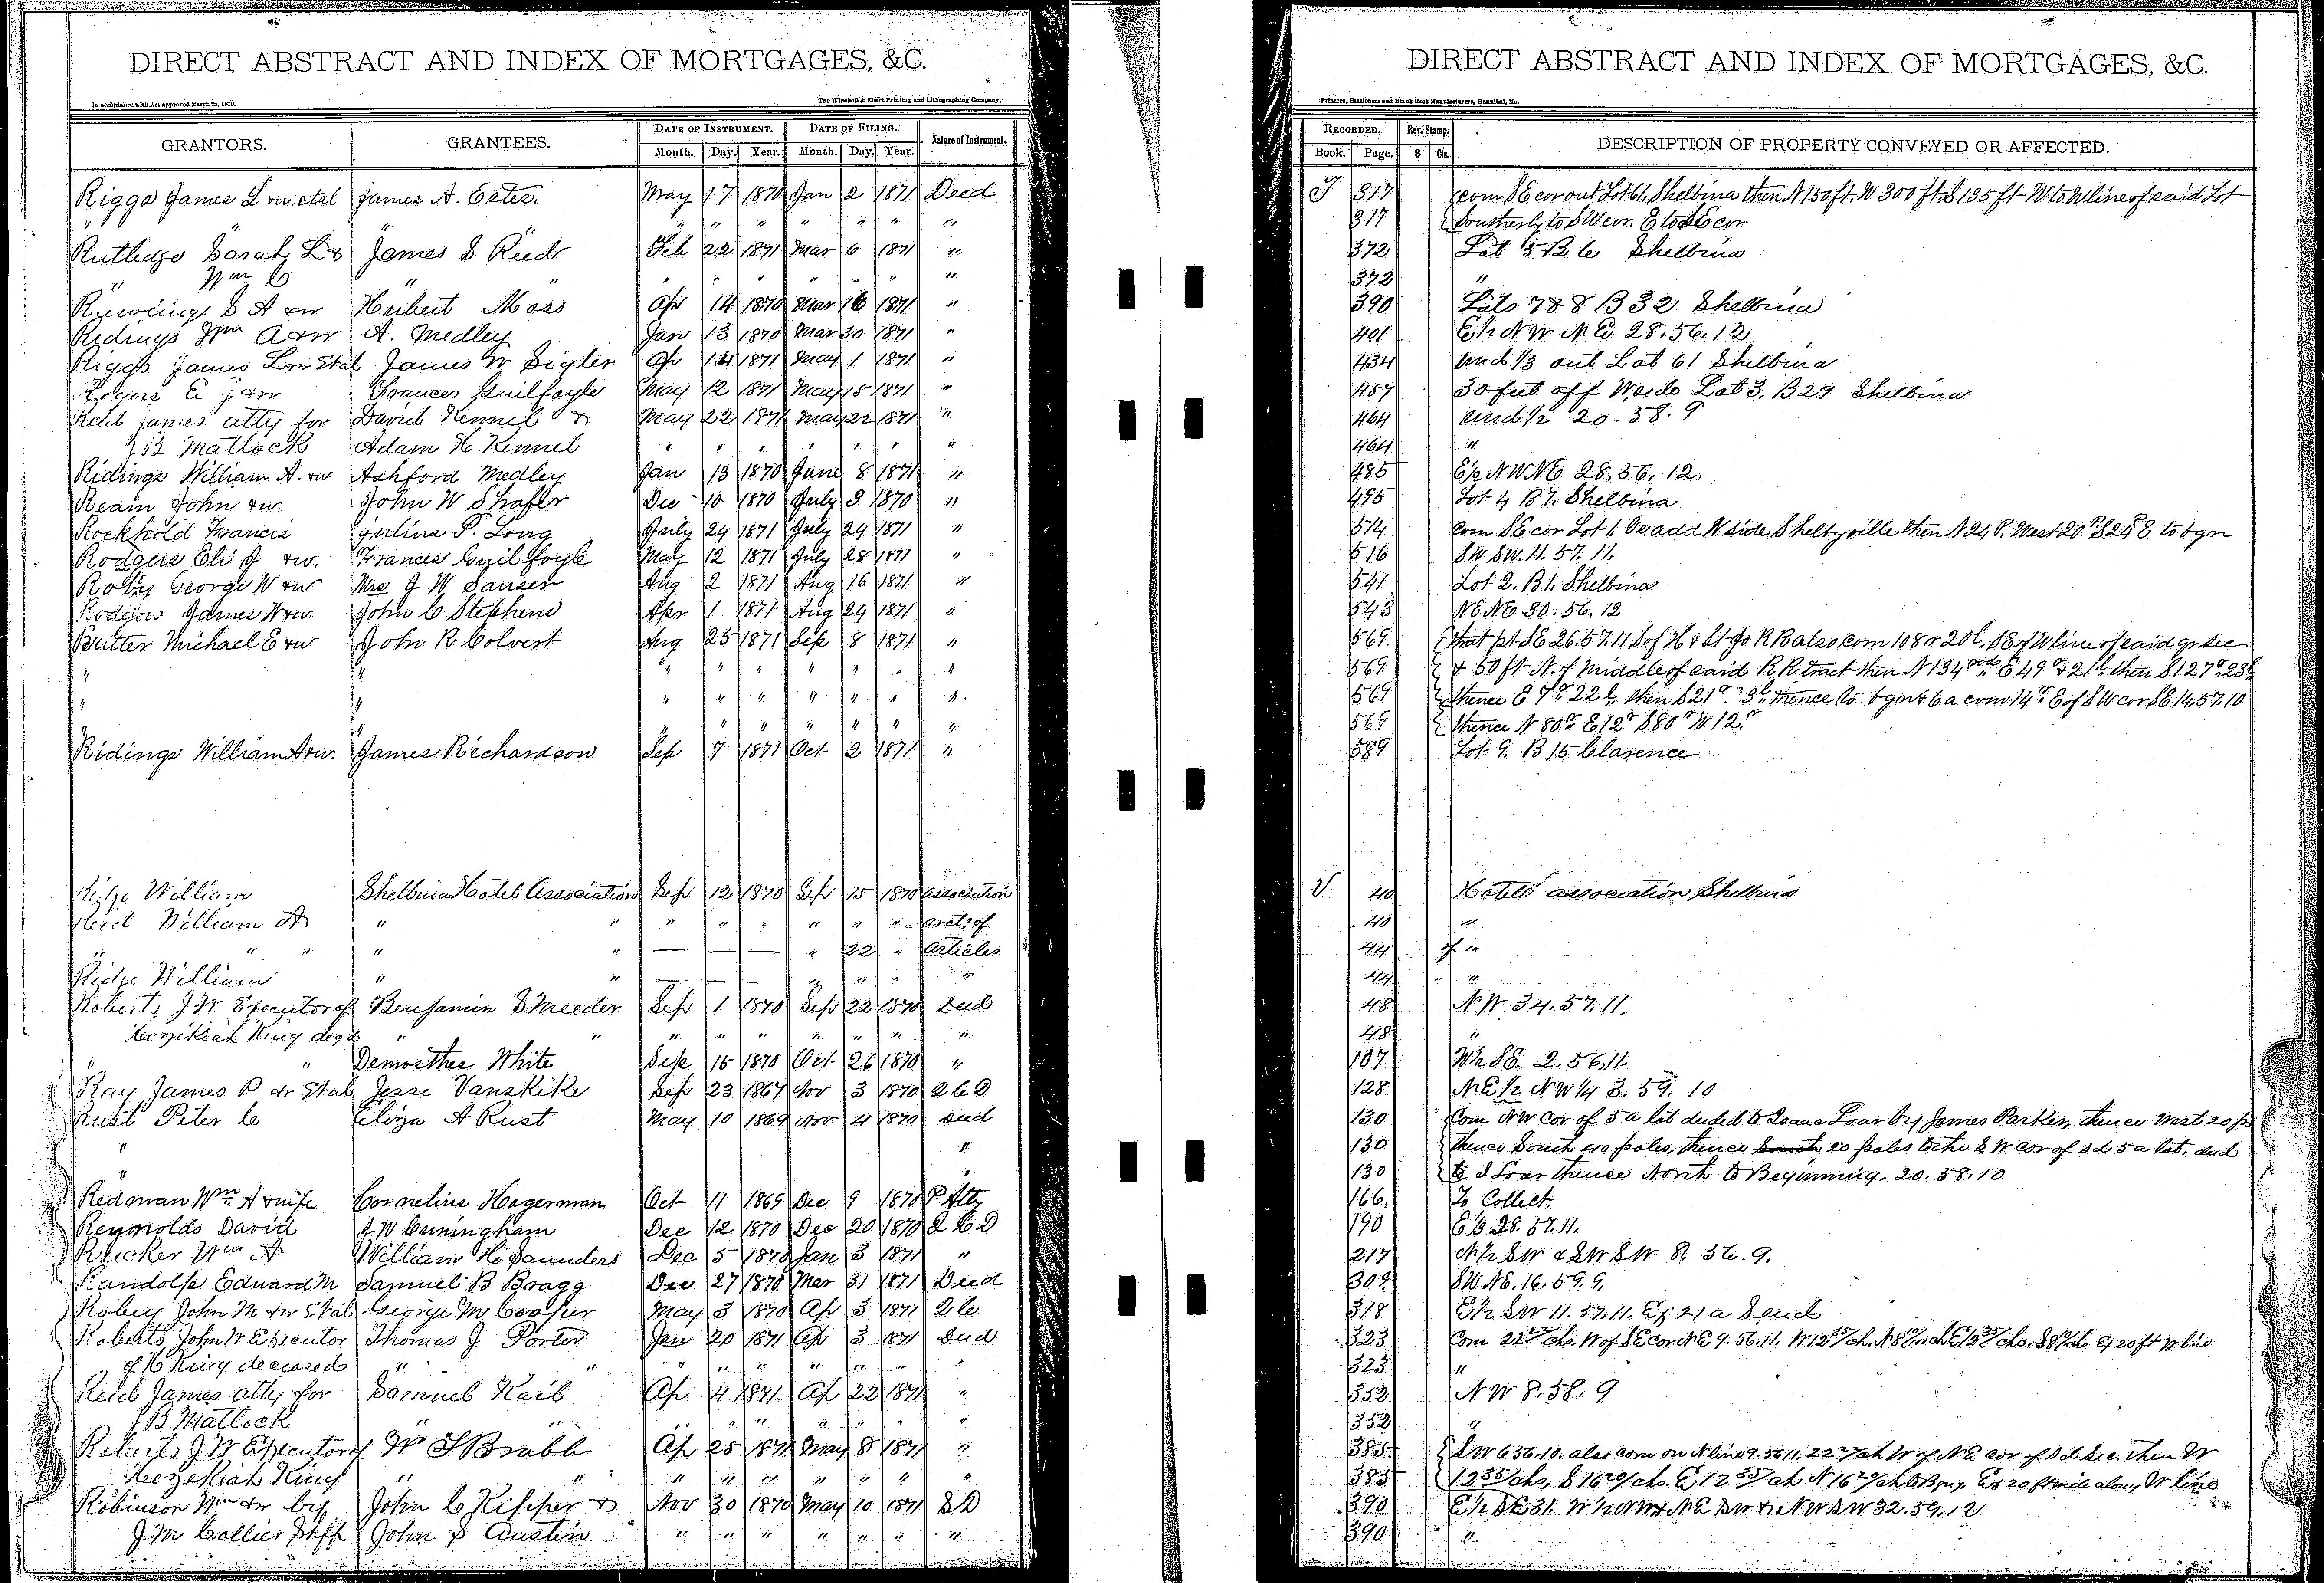 DIRECT ABSTRACT AND INDEX OF MORTGAGES, &C.
In accordance with Act approved March 25, 1870.
The Winchell & Ebert Printing and Lithographing Company,
GRANTORS. GRANTEES. DATE OF INSTRUMENT. DATE OF FILING. Nature of Instrument.
Month. Day. Year. Month. Day. Year.
Riggs James L &w. etal James A. Estes. May 17 1870 Jan 2 1871 Deed
" " " " " " " "
Rutledge Sarah L & James S Reed Feb 22 1871 Mar 6 1871 "
Wm C " " " " " " " " "
Rawlings S A &w Hubert Moss Apr 14 1870 Mar 16 1871 "
Ridings Wm A &w A. Medley Jan 13 1870 Mar 30 1871 "
Riggs James L &w Etal James W Sigler Ap 14 1871 May 1 1871 "
Rogers E J &w Frances Guilfoyle May 12 1871 May 15 1871 "
Reid James atty for David Kennel & May 22 1871 May 22 1871 "
J B Matlock Adam H Kennel " " " " " " "
Ridings William A. &w Ashford Medley Jan 13 1870 June 8 1871 "
Ream John &w. John W Shafer Dec 10 1870 July 3 1870 "
Rockhold Francis Julius P. Long July 24 1871 July 24 1871 "
Rodgers Eli J &w. Frances Guilfoyle May 12 1871 July 28 1871 "
Robey George W &w Mrs J W Sauser Aug 2 1871 Aug 16 1871 "
Rodgers James W &w. John C Stephens Apr 1 1871 Aug 24 1871 "
Rutter Michael E &w John R Colvert Aug 25 1871 Sep 8 1871 "
" " " " " " " " "
" " " " " " " " "
" " " " " " " " "
Ridings William A &w. James Richardson Sep 7 1871 Oct 2 1871 "
Ridge William Shelbina Hotel Association Sep 12 1870 Sep 15 1870 association
Reid William A " " " " " " " " arcts of
" " " " " — — — " 22 " Articles
Ridge William " " — — — " " " "
Roberts J W Executor of Benjamin S Meeder Sep 1 1870 Sep 22 1870 Deed
Hezekiah King decd " " " " " " " " "
" " Demosthes White Sep 15 1870 Oct 26 1870 "
Ray James P &w Etal Jesse Vanskike Sep 23 1867 Nov 3 1870 Q C D
Rust Peter C Eliza A Rust May 10 1869 Nov 4 1870 Deed
" "
"
Redman Wm A & wife Cornelius Hagerman Oct 11 1869 Dec 9 1870 P Atty
Reynolds David J W Cuningham Dec 12 1870 Dec 20 1870 Q C D
Rucker Wm A William H. Saunders Dec 5 1870 Jan 3 1871 "
Randolph Edward M Samuel B Bragg Dec 27 1870 Mar 31 1871 Deed
Robey John M &w Etal George M Cooper May 3 1870 Ap 3 1871 Q C
Roberts John W Executor Thomas J Porter Jan 20 1871 Ap 3 1871 Deed
of H King deceased " " " " " " " " "
Reid James atty for Samuel Kail Ap 4 1871. Ap 22 1871 "
J B Matlock " " " " " " " " "
Roberts J W Executor of Wm S Brabb Ap 25 1871 May 8 1871 "
Hezekiah King " " " " " " " " "
Robinson Wm &w by John C Kisper & Nov 30 1870 May 10 1871 S D
J M Collier Shff John S Austin " " " " " " "
DIRECT ABSTRACT AND INDEX OF MORTGAGES, &C.
Printers, Stationers and Blank Book Manufacturers, Hannibal, Mo.
RECORDED. Rev. Stamp. DESCRIPTION OF PROPERTY CONVEYED OR AFFECTED.
Book. Page. $ Cts.
T 317 com SE cor out Lot 61, Shelbina then N 150 ft. W 300 ft. S 135 ft - W to W line of said Lot
317 Southerly to SW cor. E to SE cor
372 Lot 5 B 6 Shelbina
372 "
390 Lots 7 & 8 B 32 Shelbina
401 E½ NW NE 28. 56. 12
434 und ⅓ out Lot 61 Shelbina
457 30 feet off W side Lot 3, B 29 Shelbina
464 und ½ 20. 58. 9
464 "
485 E½ NW NE 28. 56. 12.
495 Lot 4 B 7. Shelbina
514 Com SE cor Lot 1 add W side Shelbyville then N 24 P. West 20 P S 24 P E to bgn
516 SW SW. 11. 57. 11.
541 Lot 2. B 1. Shelbina
543 NE NE 30. 56. 12
569. that pt SE 26. 57. 11 S of H & St Jo R R also com 108 r 20 l. SE of W line of said qr sec
569 & 50 ft N. of middle of said R R tract then N 134 rods E 49 r & 21 l then S 127 r 23 l
569 thence E 7 r 22 l, then S 21 r 3 l thence to bgn & 6 a com 14 r E of SW cor SE 14. 57. 10
569 thence N 80 r E 12 r S 80 r W 12 r
589 Lot 9. B 15 Clarence
V. 40 Hotel association Shelbina
40 "
44 of "
44 " "
48 NW 34. 57. 11.
48 "
107 W½ SE. 2. 56. 11
128 NE ½ NW ¼ 3. 59. 10
130 Com NW Cor of 5 a lot deeded to Isaac Loar by James Parker, thence West 20 p
130 thence South 40 poles, thence South 20 poles to the SW cor of sd 5 a lot, deed
130 to I Loar thence North to Beginning. 20. 58. 10
166. To Collect.
190 28. 57. 11.
217 N½ SW & SW SW 8. 56. 9.
309. SW NE. 16. 59. 9.
318 E½ SW 11. 57. 11. Ex 21 a S end
323 Com 22 chs. W of SE Cor NE 9. 56. 11. W 12 35/ ch. N 8 ch E 12 35/ chs. S 8 ch. Ex 20 ft W line
323 "
352 NW 8. 58. 9
352 "
385 SW 6 56. 10. also com on N line 9. 56 11. 22 ch W of NE cor of sd Sec. then W
385 12 35/ chs, S 16 20/ chs. E 12 35/ ch N 16 20/ ch to Bgng. Ex 20 ft wide along W line
390 E½ SE 31. W½ NW & NE SW & NW SW 32. 59. 12
390 "